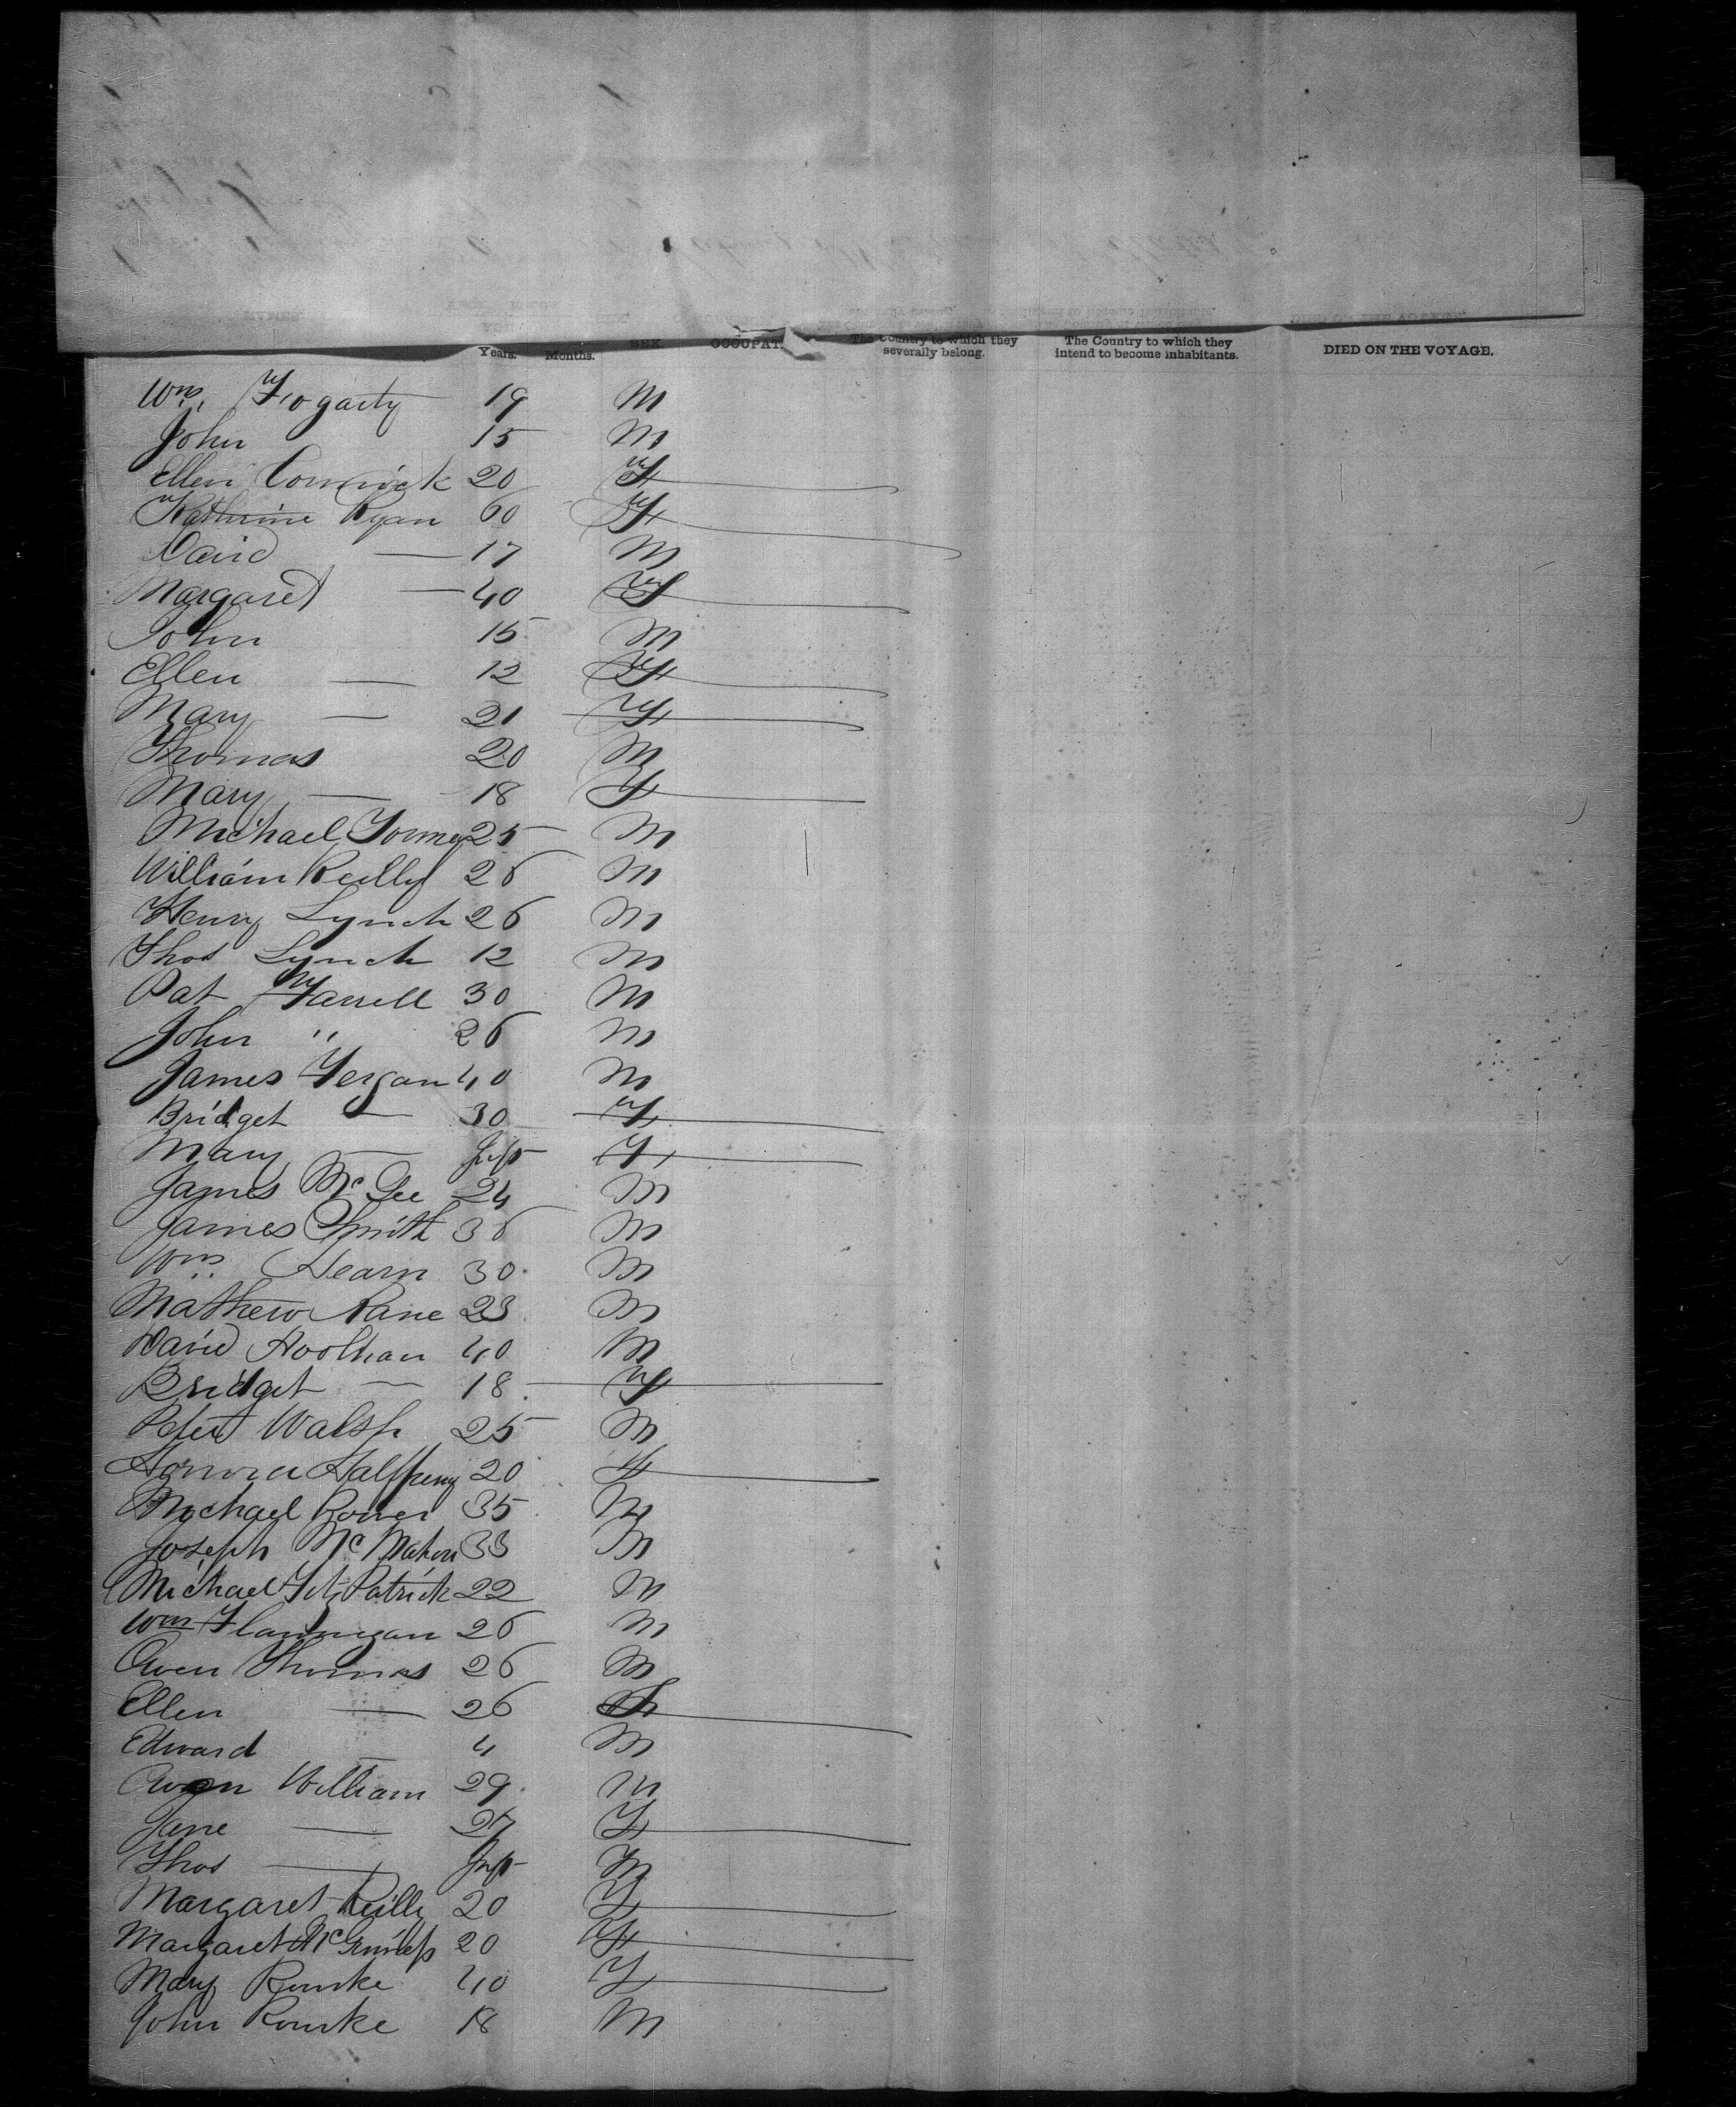 Years. Months. SEX. OCCUPAT The Country to which they severally belong. The Country to which they intend to become inhabitants. DIED ON THE VOYAGE.
Wm. Fogarty 19 M
John 15 M
Ellen Cormick 20 F
Kathrine Ryan 60 F
David — 17 M
Margaret — 40 F
John 15 M
Ellen — 12 F
Mary — 21 F
Thomas 20 M
Mary — 18 F
Michael 25 M
William Reilly 26 M
Henry Lynch 26 M
Thos Lynch 12 M
Pat Farrell 30 M
John " 26 M
James Fergan 40 M
Bridget — 30 F
Mary — Inf F
James McGee 24 M
James Smith 36 M
Wm Hearn 30 M
Mathew Kane 23 M
David Hoolhan 40 M
Bridget — 18 F
Peter Walsh 25 M
Honora Halfpeny 20 F
Michael Power 35 M
Joseph McMahon 33 M
Michael FitzPatrick 22 M
Wm Flannigan 26 M
Owen Thomas 26 M
Ellen — 26 F
Edward — 4 M
Owen William 29 M
Jane — 27 F
Thos — Inf M
Margaret Reilly 20 F
Margaret 20 F
Mary Rourke 40 F
John Rourke 18 M